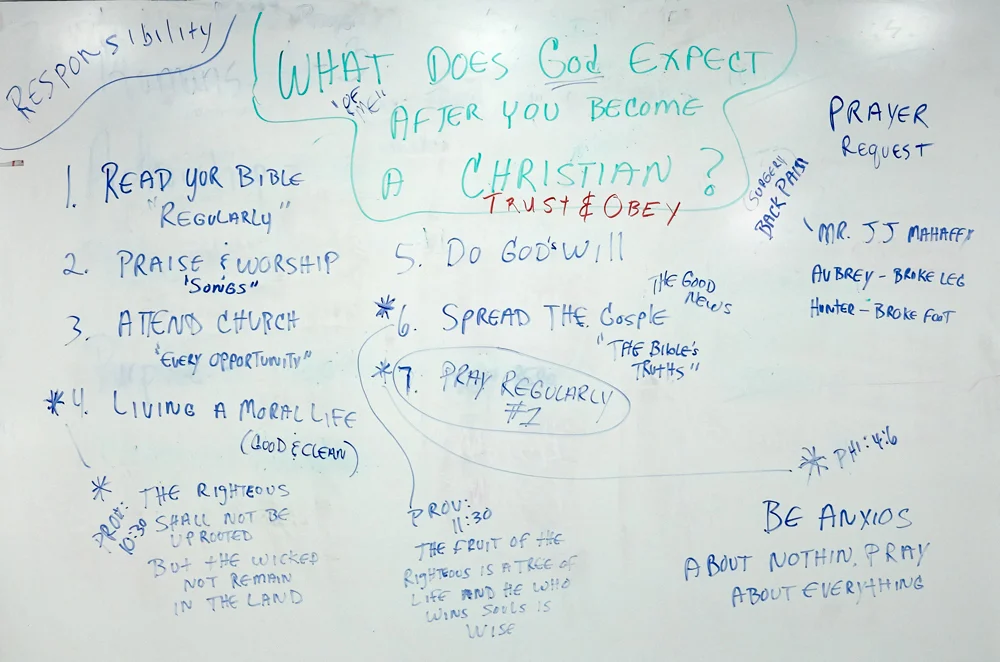 RESPONSIBILITY
WHAT DOES God EXPECT
"OF ME"
AFTER YOU BECOME
A CHRISTIAN ?
TRUST & OBEY
1. READ YOR BIBLE
"REGULARLY"
2. PRAISE & WORSHIP
"SONGS"
3. ATTEND CHURCH
"EVERY OPPORTUNITY"
* 4. LIVING A MORAL LIFE
(GOOD & CLEAN)
* PROV: 10:30
THE RIGHTEOUS
SHALL NOT BE
UPROOTED
BUT THE WICKED
NOT REMAIN
IN THE LAND
5. DO GOD'S WILL
* 6. SPREAD THE GOSPLE
THE GOOD
NEWS
"THE BIBLE'S
TRUTHS"
* 7. PRAY REGULARLY
#1
PROV:
11:30
THE FRUIT OF THE
RIGHTEOUS IS A TREE OF
LIFE AND HE WHO
WINS SOULS IS
WISE
PRAYER
REQUEST
(SURGERY
BACK PAIN
MR. JJ MAHAFFY
AUBREY - BROKE LEG
HUNTER - BROKE FOOT
* PHI: 4:6
BE ANXIOS
ABOUT NOTHIN, PRAY
ABOUT EVERYTHING